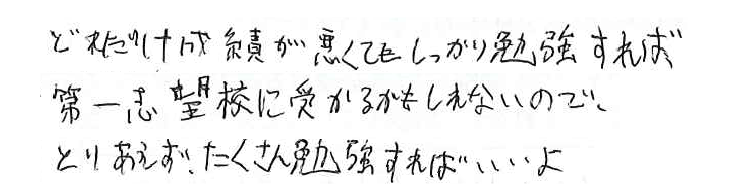 どれだけ成績が悪くてもしっかり勉強すれば
第一志望校に受かるかもしれないので、
とりあえず、たくさん勉強すればいいよ